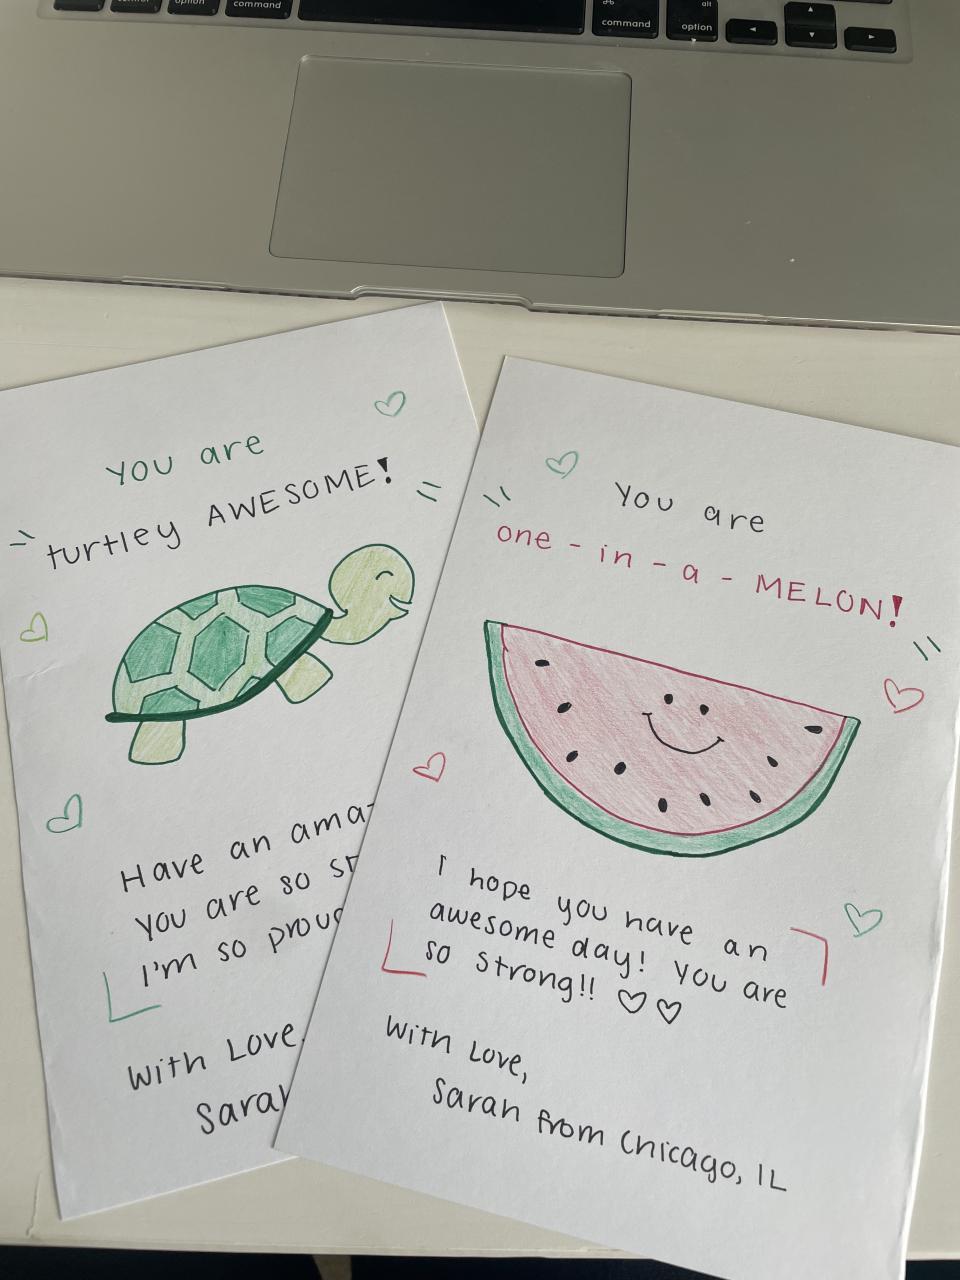 command
option
command
alt
option
You are
turtley AWESOME!
Have an ama-
You are so
I'm so
With Love,
Sarah
You are
one-in-a-MELON!
I hope you have an
awesome day! You are
so strong!!
With Love,
Sarah from Chicago, IL